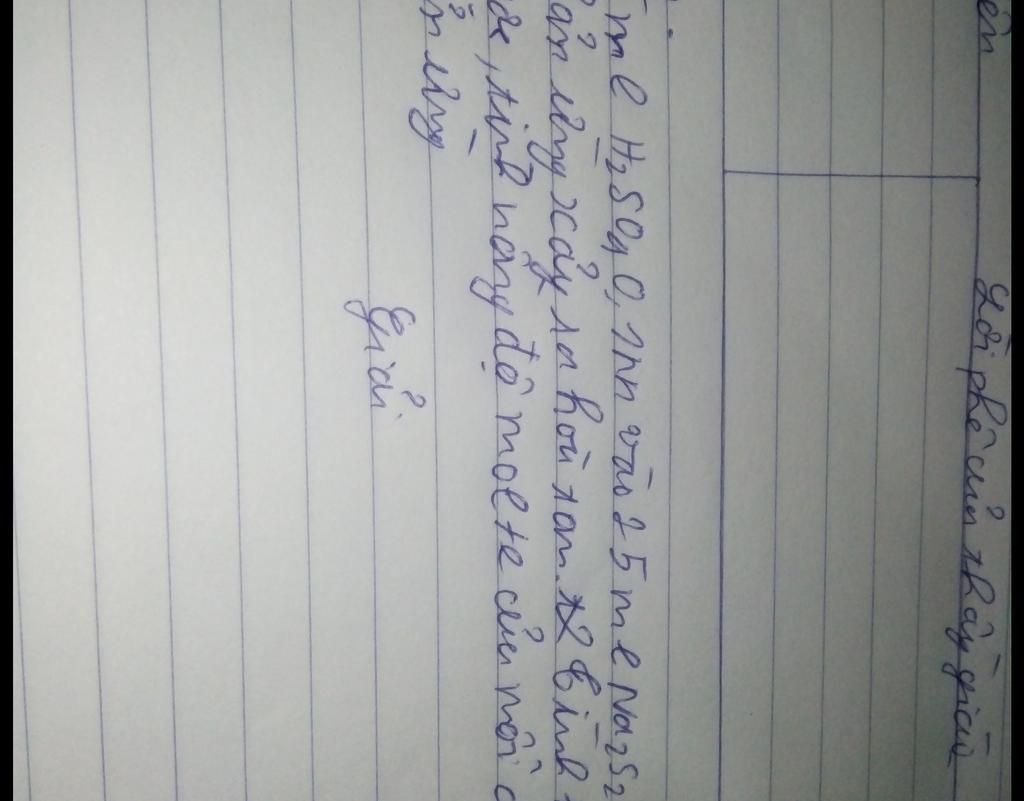 ên
Lời phê của thầy giáo
ml H₂SO₄ 0,1M vào 25 ml Na₂S₂
ản ứng xảy ra hoàn tan. 2 bình
, tính nồng độ mol+e của mỗi c
n ứng
Giải.